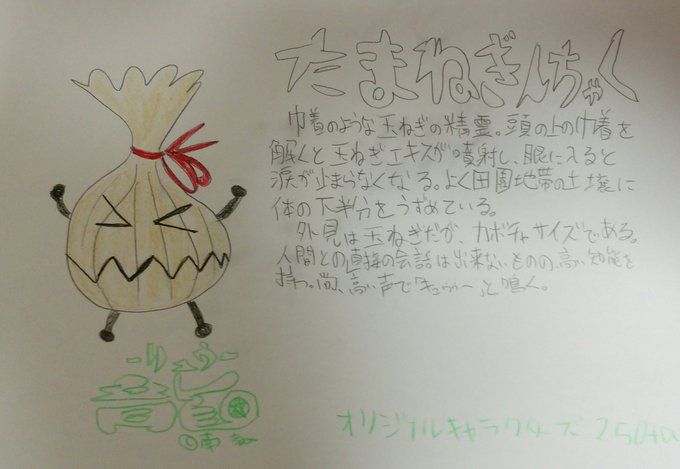 たまねぎんちゃく
巾着のような玉ねぎの精霊。頭の上の巾着を
解くと玉ねぎエキスが噴射し、眼に入ると
涙が止まらなくなる。よく田園地帯の土壌に
体の下半分をうずめている。
外見は玉ねぎだが、カボチャサイズである。
人間との直接の会話は出来ないものの、高い知能を
持つ。尚、高い声で「キュゥゥー」と鳴く。
-ゆう-
オリジナルキャラクターズ